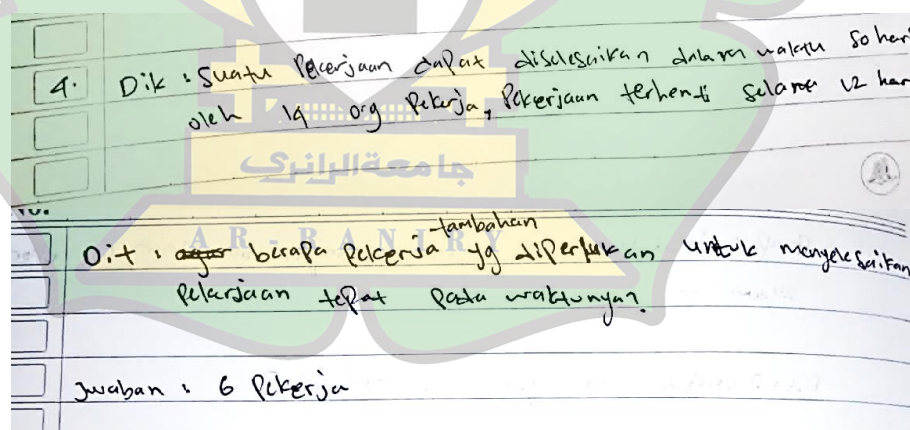 4. Dik : Suatu Pekerjaan dapat diselesaikan dalam waktu 50 hari
oleh 14 org Pekerja, Pekerjaan terhenti selama 12 har
جامعة الرانري
AR-RANIRY
tambahan
Dit : berapa Pekerja yg diperlukan untuk menyelesaikan
Pekerjaan tepat pada waktunya?
Jwaban : 6 Pekerja